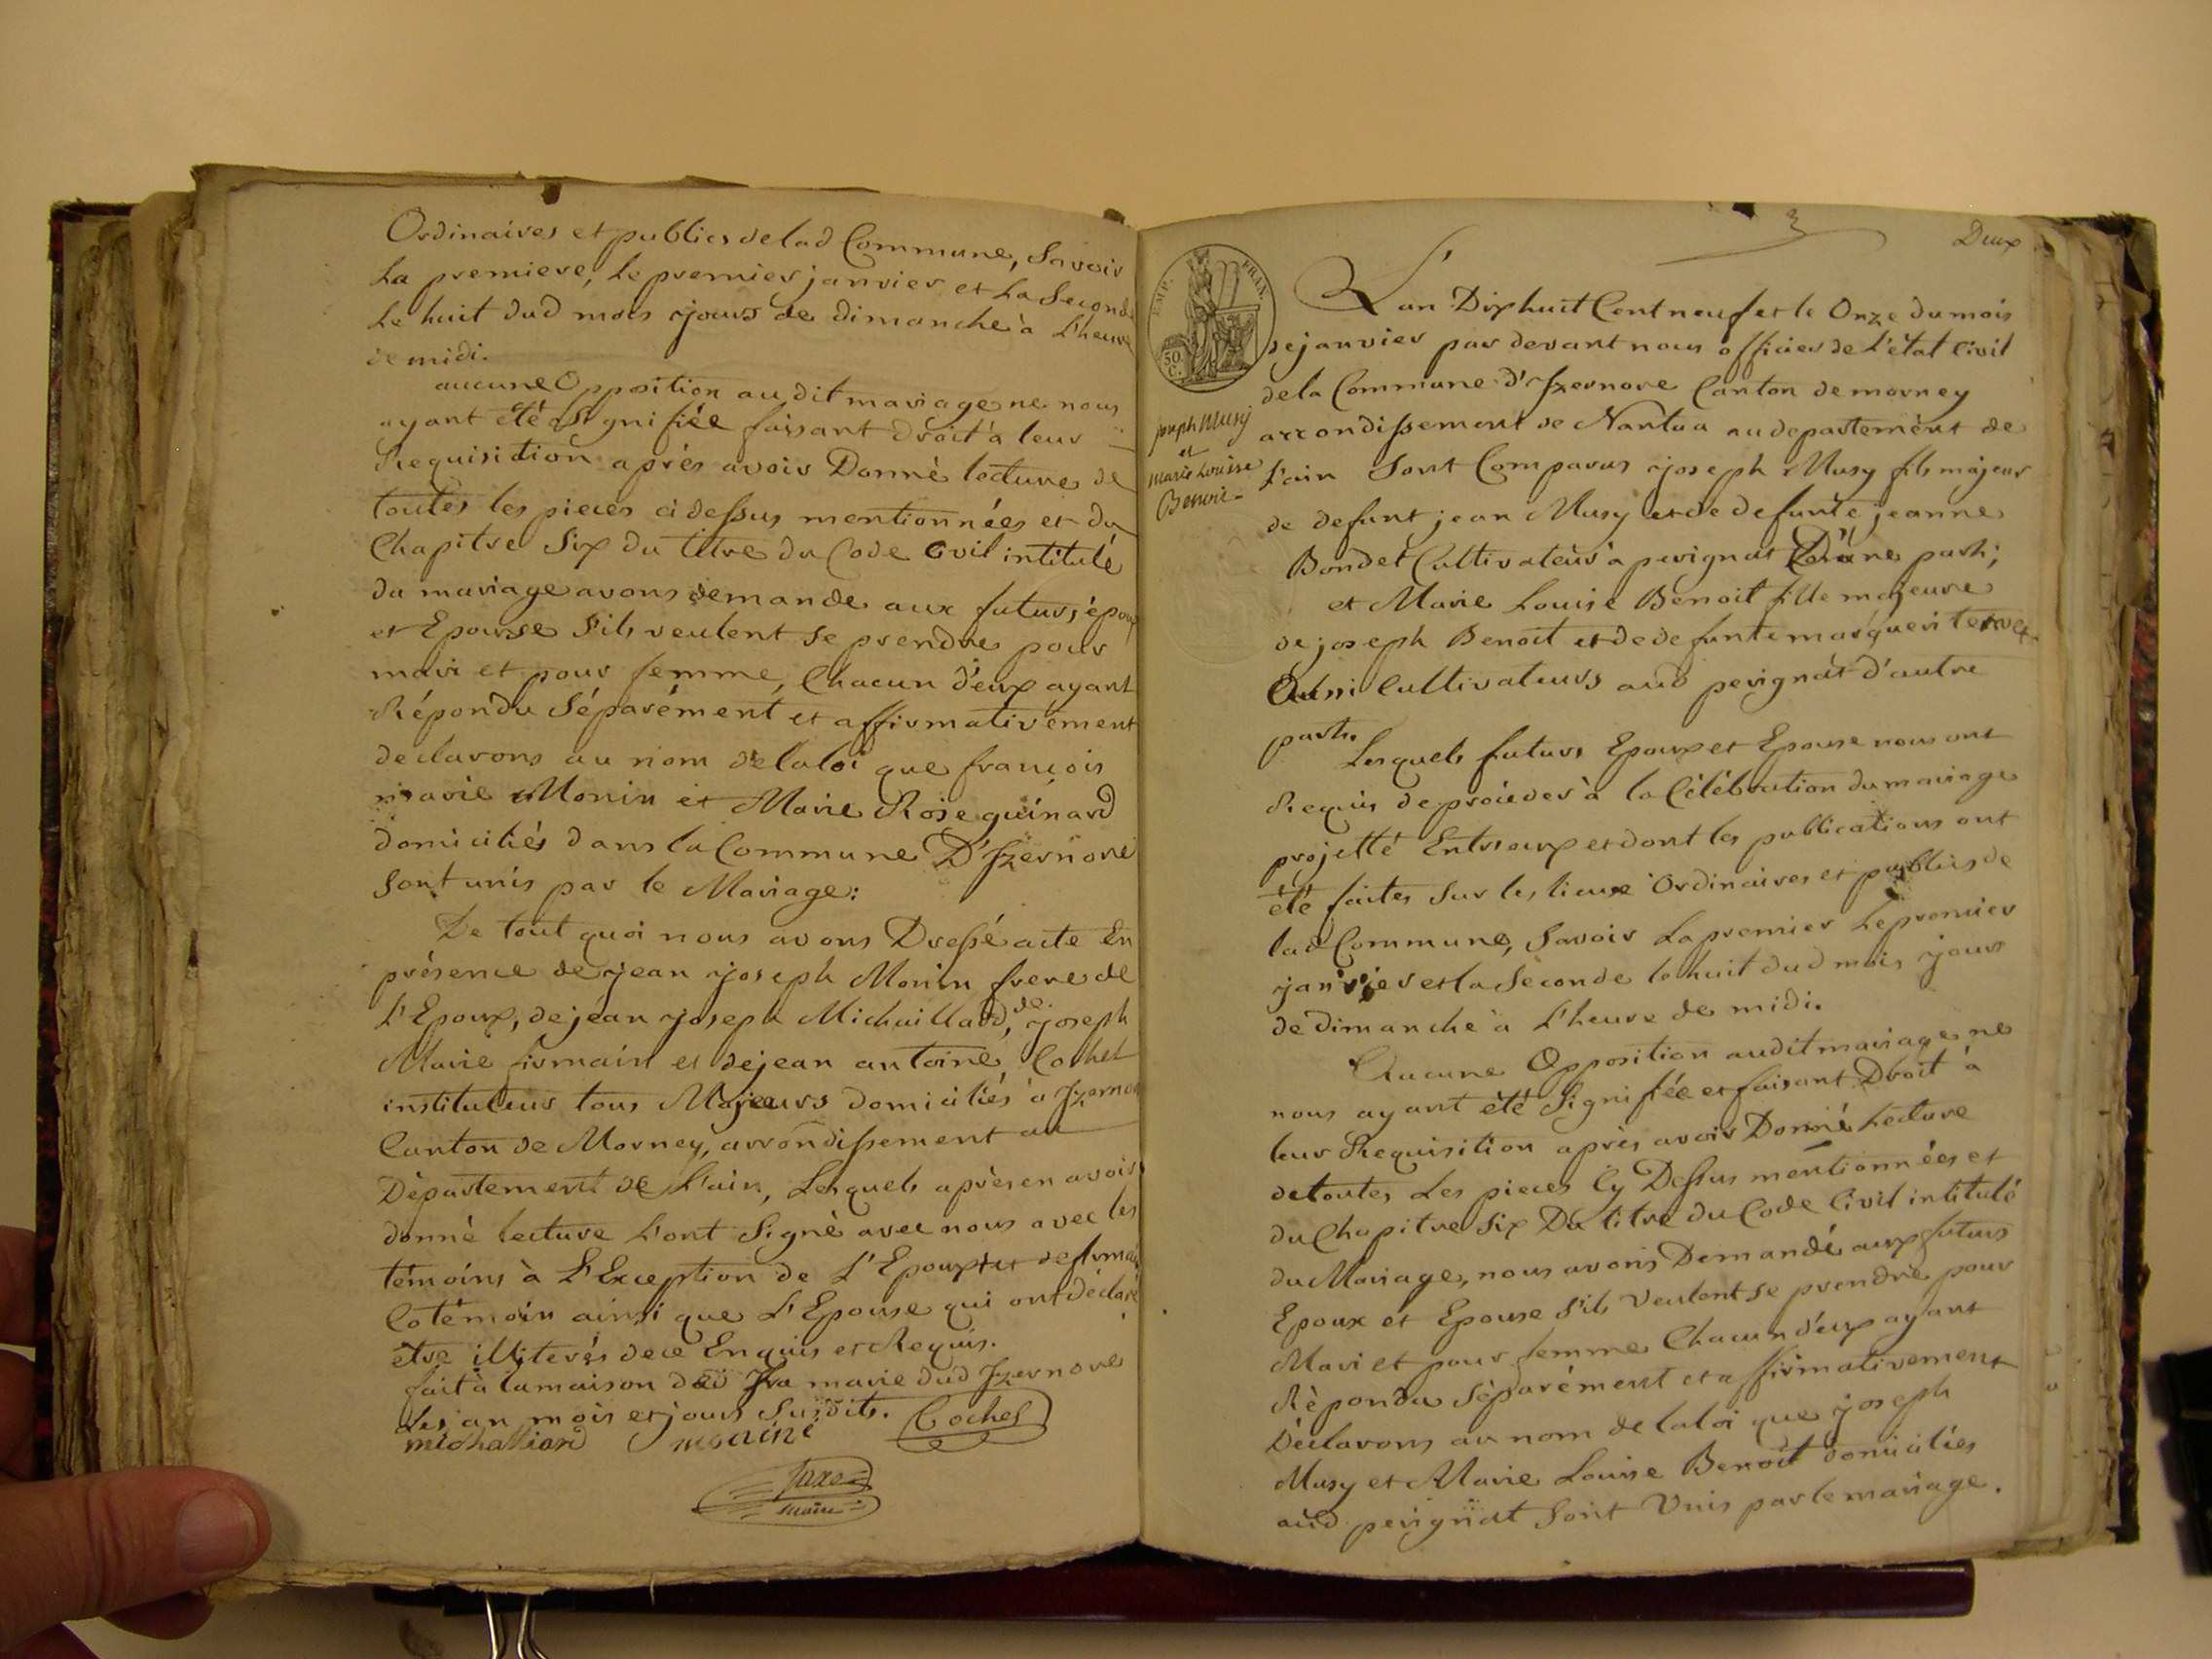 Ordinaires et publics de lad Commune, Savoir
La premiere, Le premier janvier et La Seconde
Le huit dud mois jours de dimanche à L'heure
de midi.
aucune Opposition au dit mariage ne nous
ayant été Signifiée faisant droit à leur
Requisition après avoir Donné lecture de
toutes les pieces ci dessus mentionnées et du
Chapitre Six du titre du Code Civil intitulé
du mariage avons demande aux futurs époux
et Epouse S'ils veulent se prendre pour
mari et pour femme, Chacun d'eux ayant
Répondu Séparément et affirmativement
declarons au nom de la loi que françois
marie Monin et Marie Rose guinard
domiciliés dans la Commune D'Izernore
sont unis par le Mariage:
De tout quoi nous avons Dressé acte En
présence de jean joseph Monin frere de
L'Epoux, de jean joseph Michaillard, de joseph
Marie firmain et de jean antoine Cochet
instituteur tous Majeurs domiciliés à Izernore
Canton de Morney, arrondissement au
Département de L'ain, Lesquels après en avoir
donné lecture L'ont Signé avec nous avec les
témoins à L'Exception de L'Epoux et de firmain
Cotémoin ainsi que L'Epouse qui ont déclaré
être illiterés de ce Enquis et Requis.
fait à la maison marie dud Izernore
Les an mois et jours Susdits. Cochet
michalliard
maire
3
Deux
EMP. FRAN.
50 C.
joseph Musy
et
marie Louise
Benoit
L'an Dix huit Cent neuf et le Onze du mois
de janvier par devant nous officier de L'état Civil
de la Commune d'Izernore Canton de morney
arrondissement de Nantua au departement de
L'ain Sont Comparus joseph Musy fils majeur
de defunt jean Musy et de defunte jeanne
Bondet Cultivateur à perignat D'une part;
et Marie Louise Benoit fille majeure
de joseph Benoit et de defunte marguerite
Aussi Cultivateurs aud perignat d'autre
part.
Lesquels futurs Epoux et Epouse nous ont
Requis de proceder à la Célébration du mariage
projetté Entre eux et dont les publications ont
été faites Sur les lieux Ordinaires et publics de
lad Commune, Savoir La premier Le premier
janvier et la Seconde le huit dud mois jours
de dimanche à L'heure de midi.
Aucune Opposition audit mariage ne
nous ayant été Signifiée et faisant Droit à
leur Requisition après avoir Donné Lecture
de toutes Les pieces Cy Dessus mentionnées et
du Chapitre Six Du titre du Code Civil intitulé
du Mariage, nous avons Demandé aux futurs
Epoux et Epouse S'ils Veulent se prendre pour
Mari et pour femme Chacun d'eux ayant
Répondu Séparément et affirmativement
Déclarons au nom de la loi que joseph
Musy et Marie Louise Benoit domiciliés
aud perignat Sont Unis par le mariage.